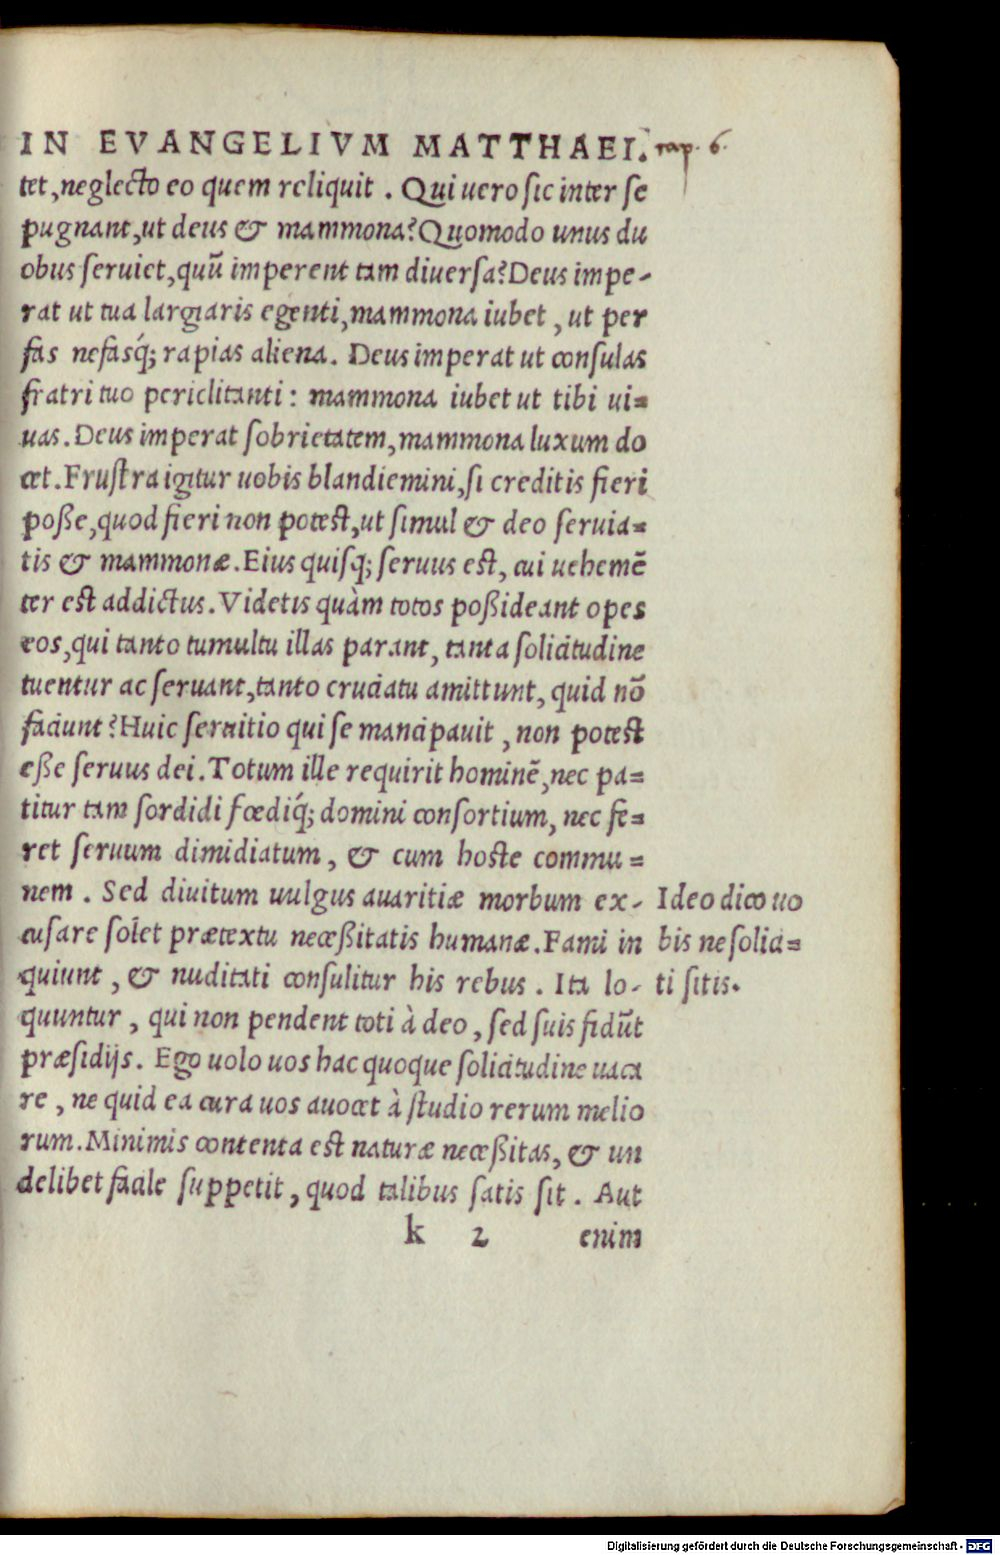 IN EVANGELIVM MATTHAEI. cap. 6.
tet, neglecto eo quem reliquit. Qui uero sic inter se
pugnant, ut deus & mammona? Quomodo unus du
obus seruiet, quũ imperent tam diuersa? Deus impe-
rat ut tua largiaris egenti, mammona iubet, ut per
fas nefasq́; rapias aliena. Deus imperat ut consulas
fratri tuo periclitanti: mammona iubet ut tibi ui=
uas. Deus imperat sobrietatem, mammona luxum do
cet. Frustra igitur uobis blandiemini, si creditis fieri
poße, quod fieri non potest, ut simul & deo seruia=
tis & mammonæ. Eius quisq; seruus est, cui uehemẽ
ter est addictus. Videtis quàm totos poßideant opes
eos, qui tanto tumultu illas parant, tanta solicitudine
tuentur ac seruant, tanto cruciatu amittunt, quid nõ
faciunt? Huic seruitio qui se mancipauit, non potest
eße seruus dei. Totum ille requirit hominẽ, nec pa=
titur tam sordidi fœdiq́; domini consortium, nec fe=
ret seruum dimidiatum, & cum hoste commu=
nem. Sed diuitum uulgus auaritiæ morbum ex-
cusare solet prætextu neceßitatis humanæ. Fami in
quiunt, & nuditati consulitur his rebus. Ita lo-
quuntur, qui non pendent toti à deo, sed suis fidũt
præsidijs. Ego uolo uos hac quoque solicitudine uaca
re, ne quid ea cura uos auocet à studio rerum melio
rum. Minimis contenta est naturæ neceßitas, & un
delibet facile suppetit, quod talibus satis sit. Aut
k 2 enim
Ideo dico uo
bis ne solici=
ti sitis.
Digitalisierung gefördert durch die Deutsche Forschungsgemeinschaft - DFG